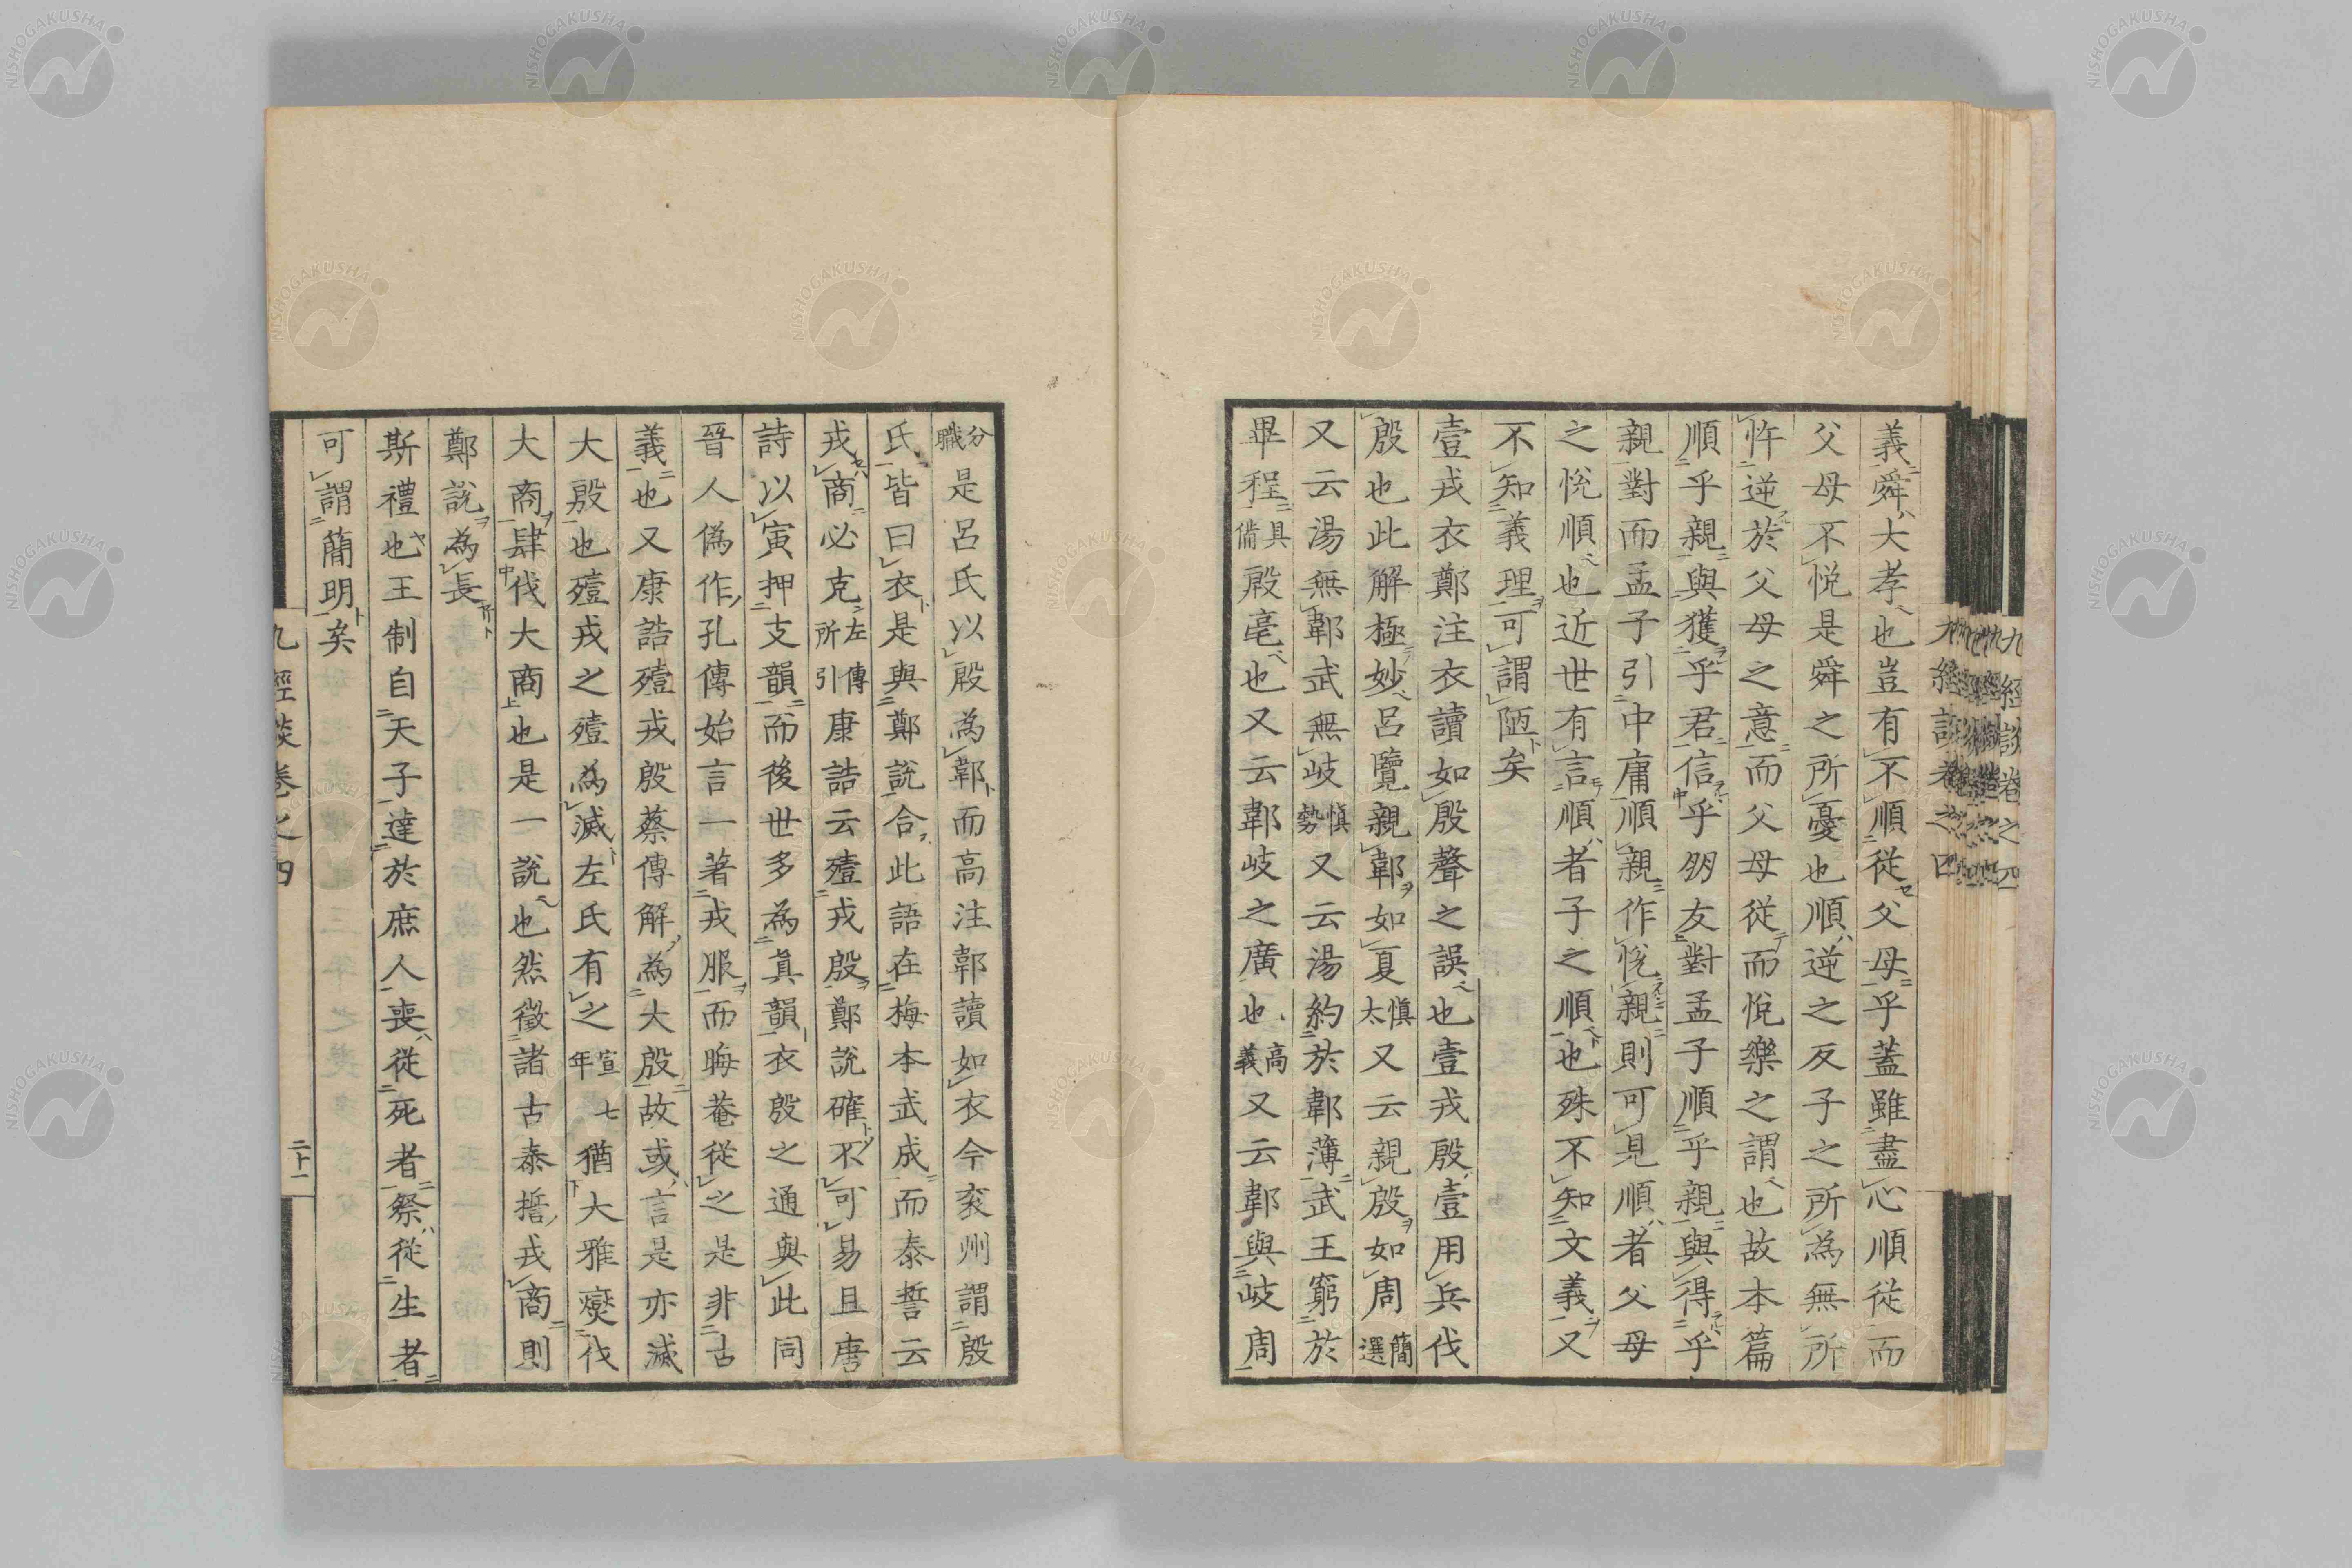 義舜大孝也豈有不順從父母乎蓋雖盡心順從而
父母不悅是舜之所憂也順逆之反子之所為無所
忤逆於父母之意而父母從而悅樂之謂也故本篇
順乎親與獲乎君信乎朋友對孟子順乎親與得乎
親對而孟子引中庸順親作悅親則可見順者父母
之悅順也近世有言順者子之順也殊不知文義又
不知義理可謂陋矣
壹戎衣鄭注衣讀如殷聲之誤也壹戎殷壹用兵伐
殷也此解極妙呂覽親郼如夏慎大又云親殷如周簡選
又云湯無郼武無岐慎勢又云湯約於郼薄武王窮於
畢程具備殷亳也又云郼岐之廣也高義又云郼與岐周
分職是呂氏以殷為郼而高注郼讀如衣今兗州謂殷
氏皆曰衣是與鄭說合此語在梅本武成而泰誓云
戎商必克左傳所引康誥云殪戎殷鄭說確不可易且唐
詩以寅押支韻而後世多為眞韻衣殷之通與此同
晉人偽作孔傳始言一著戎服而晦菴從之是非古
義也又康誥殪戎殷蔡傳解為大殷故或言是亦滅
大殷也殪戎之殪為滅左氏有之宣年七猶大雅燮伐
大商肆伐大商也是一說也然徵諸古泰誓戎商則
鄭說為長
斯禮也王制自天子達於庶人喪從死者祭從生者
可謂簡明矣
九經談卷之四
二十一
九經談卷之四
NISHOGAKUSHA